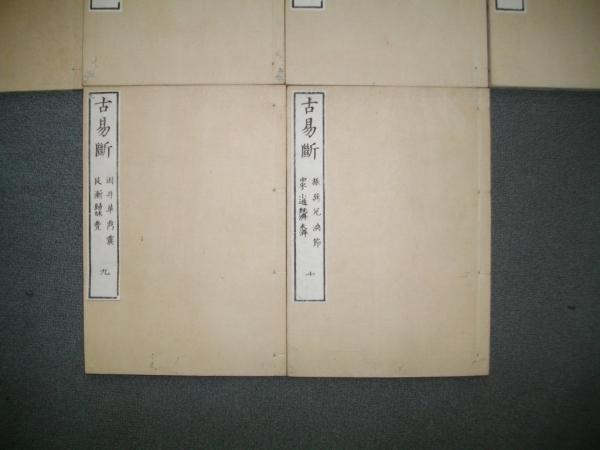 古易斷
困井革鼎震
艮漸歸妹豊
九
古易斷
旅巽兌渙節
中孚小過既濟未濟
十